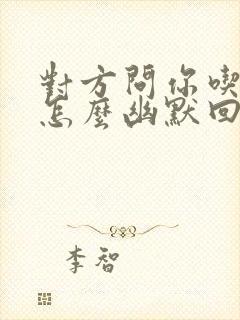 對方問你喫
怎麼幽默回
李智